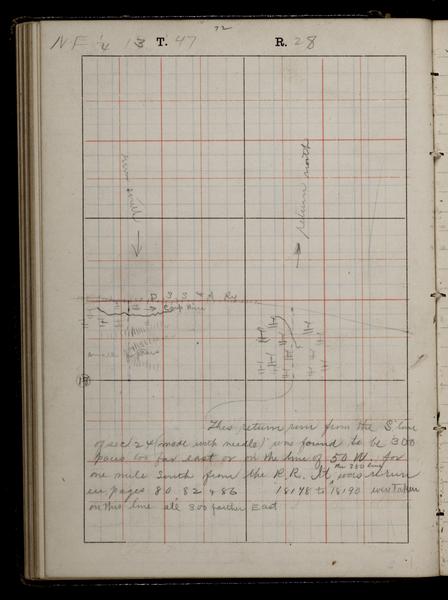 72
NE 1/4 13 T. 47 R. 28
run south
return north
D. S. S. & A Ry
Camp Mine
This return run from the S line
of sec 24 (made with needle) was found to be 300
paces too far east or on the line of 50 W. for
one mile South from the R.R. It was rerun
the 250 line
in pages 80 82 & 86 18178 to 18190 were taken
on this line ale 300 farther East